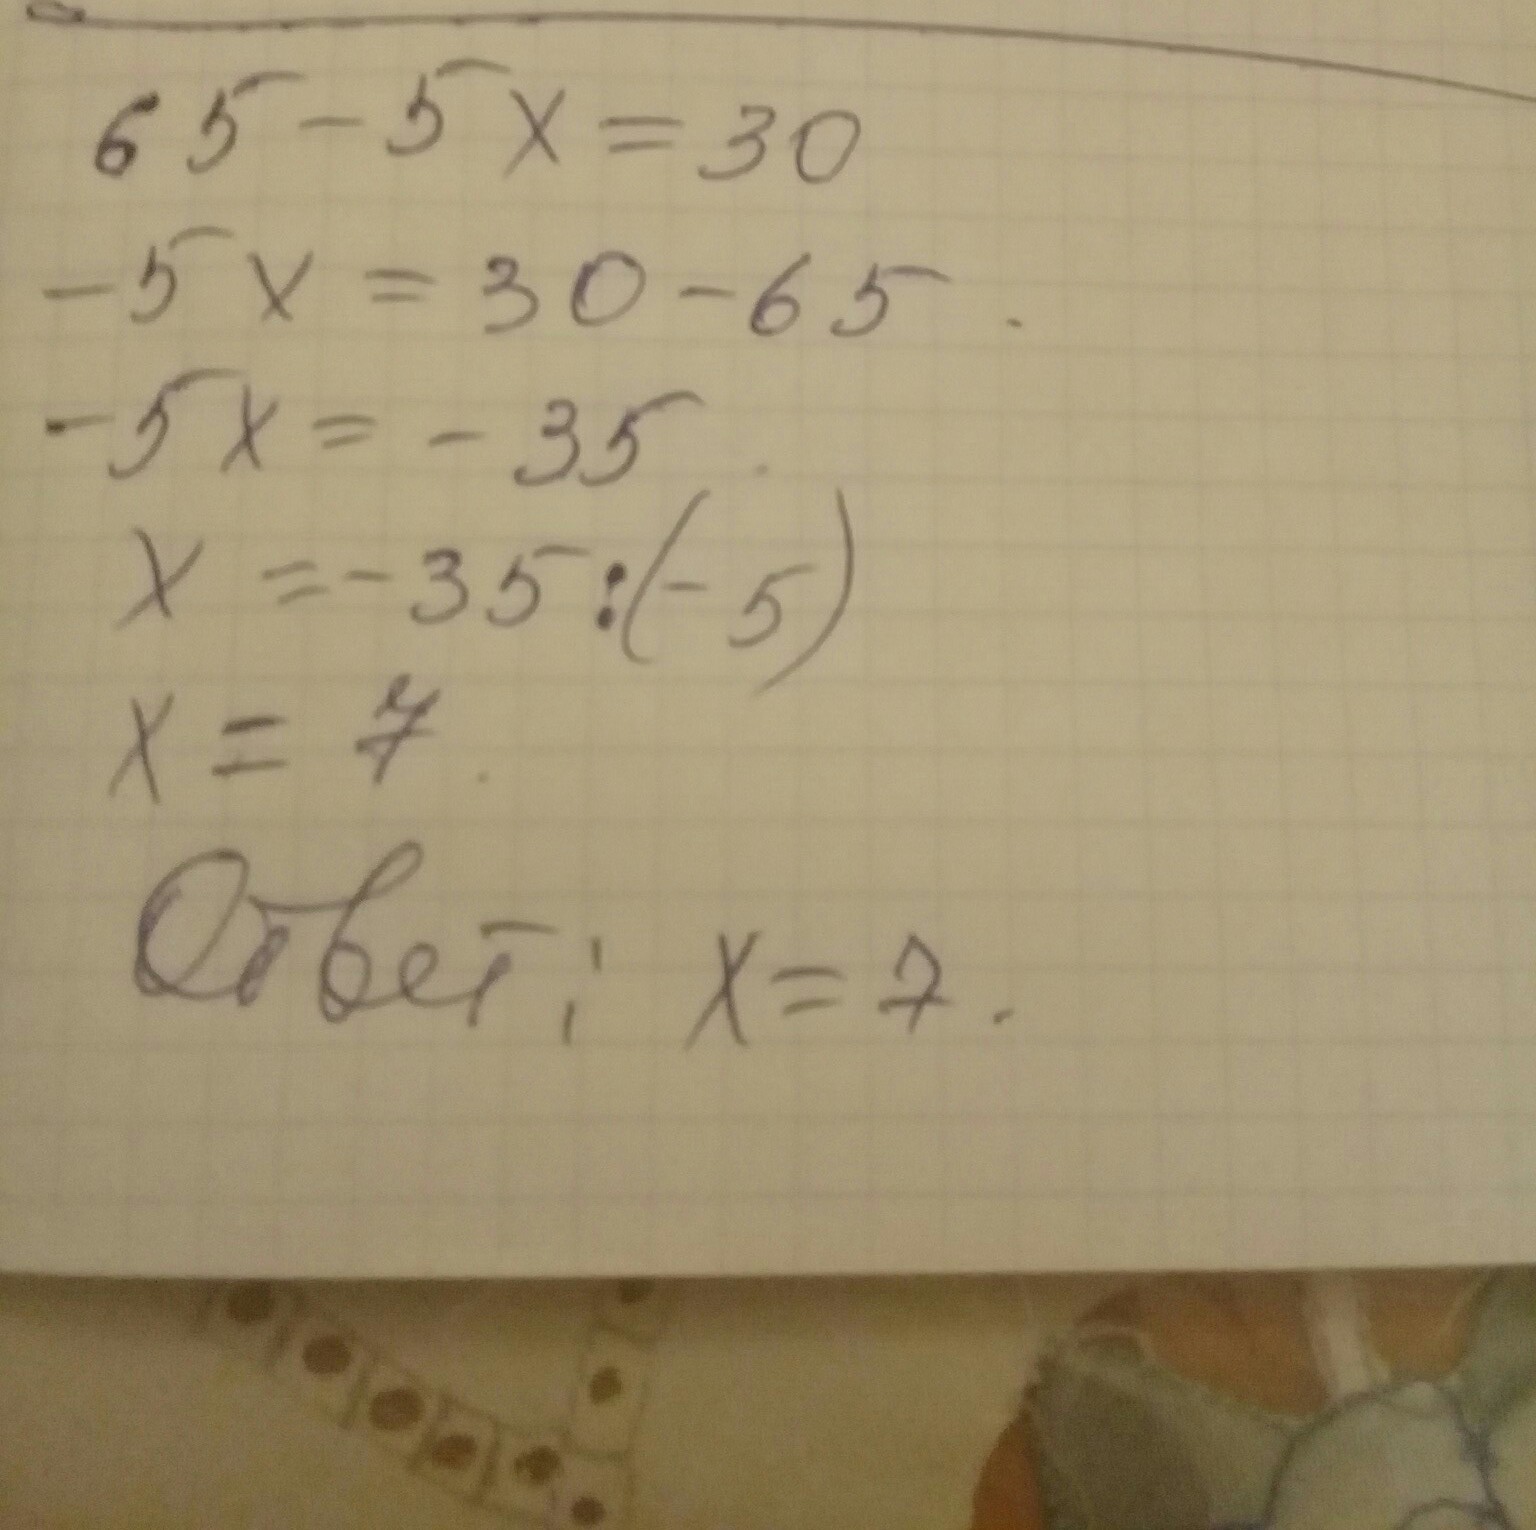 65-5x=30
-5x=30-65.
-5x=-35.
x=-35:(-5)
x=7.
Ответ: x=7.